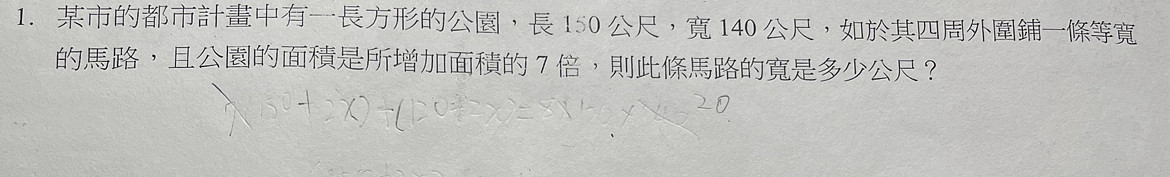 1. 某市的都市計畫中有一長方形的公園，長 150 公尺，寬 140 公尺，如於其四周外圍鋪一條等寬
的馬路，且公園的面積是所增加面積的 7 倍，則此條馬路的寬是多少公尺？
20